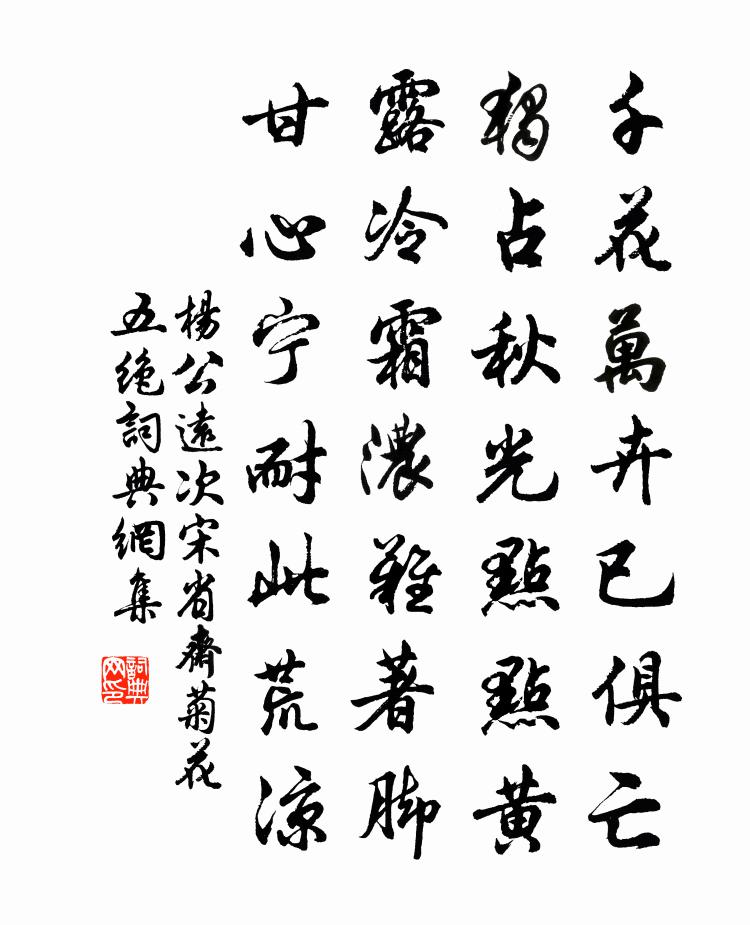 千花萬卉已俱亡
獨占秋光點點黃
露冷霜濃難著脚
甘心宁耐此荒凉
楊公遠次宋省齋菊花
五絶詞典網集
詞典
网印